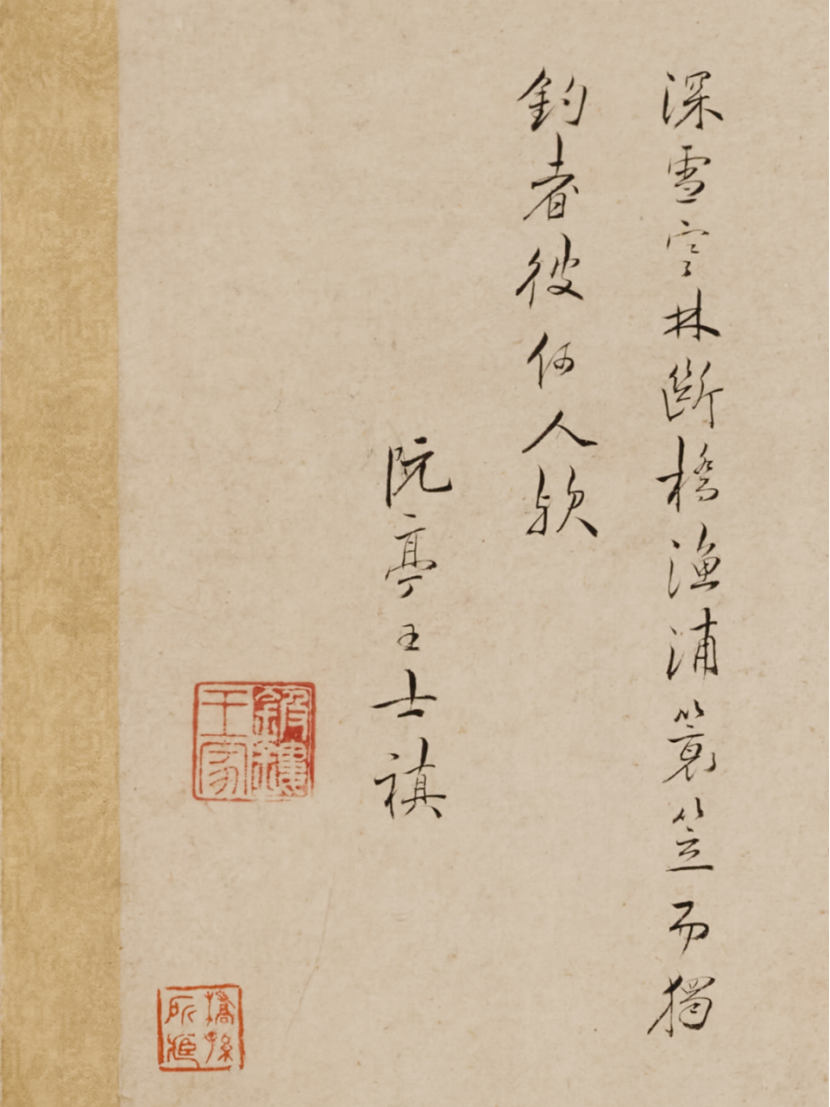 深雪寒林斷橋漁浦簑笠而獨
釣者彼何人歟
阮亭王士禛